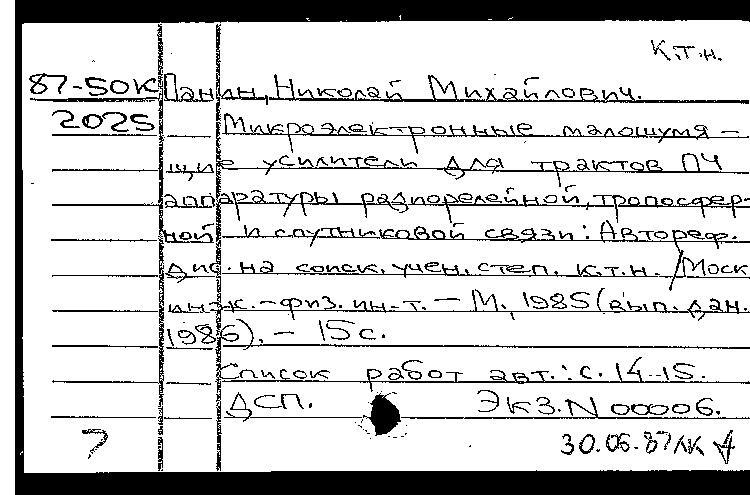 К.т.н.
87-50К Панин, Николай Михайлович.
2025 Микроэлектронные малошумя-
щие усилители для трактов ПЧ
аппаратуры радиорелейной, тропосфер-
ной и спутниковой связи: Автореф.
дис. на соиск. учен. степ. к.т.н. / Моск
инж.-физ. ин-т. - М., 1985 (вып. дан.
1986). - 15 с.
Список работ авт.: с. 14-15.
ДСП. Экз. N 00006.
7 30.06.87 ЛК